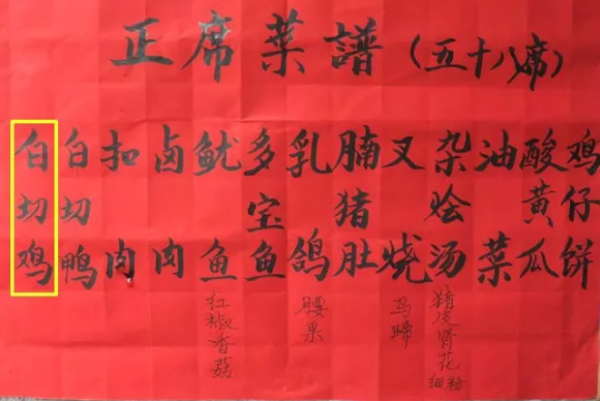 正席菜譜(五十八席)
白切鸡
白切鸭
扣肉
卤肉
鱿鱼
多宝鱼
乳鸽
腩猪肚
叉烧
杂烩汤
油菜
酸黄瓜
鸡仔饼
红椒香菇
腰果
马蹄
猪皮肾花